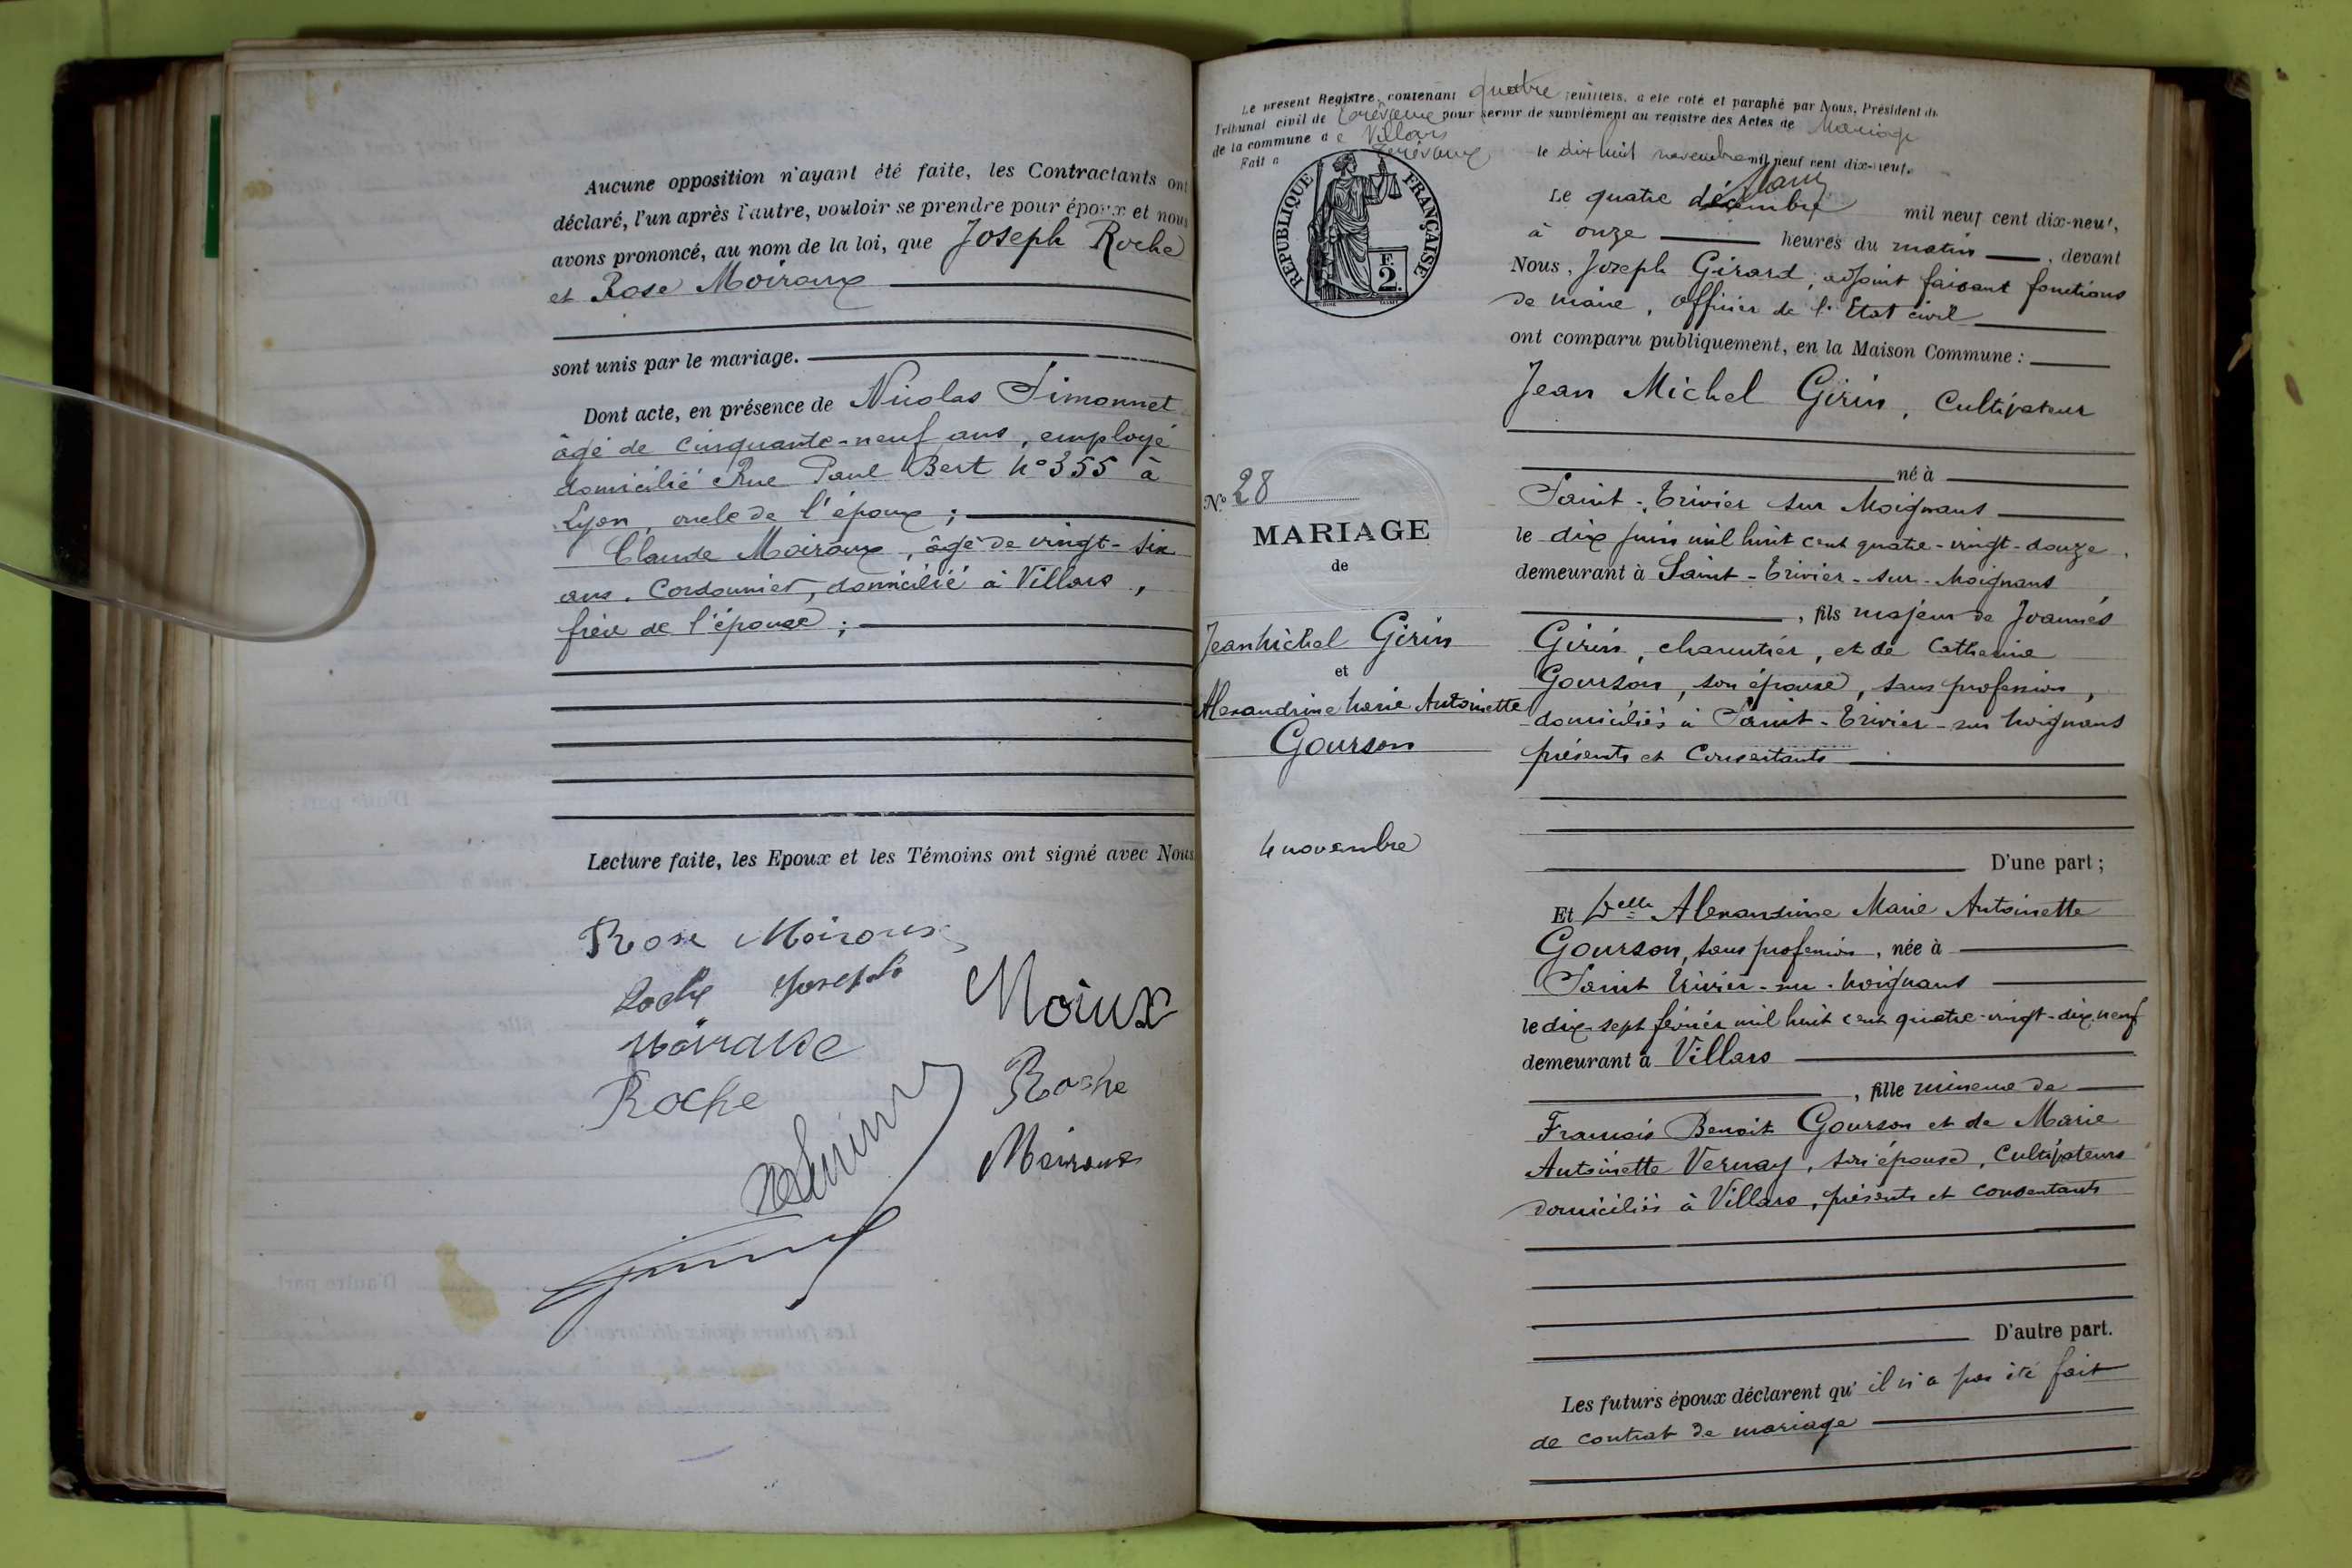 Aucune opposition n'ayant été faite, les Contractants ont
déclaré, l'un après l'autre, vouloir se prendre pour époux et nous
avons prononcé, au nom de la loi, que Joseph Roche
et Rose Moiroux
sont unis par le mariage.
Dont acte, en présence de Nicolas Simonnet
âgé de cinquante-neuf ans, employé
domicilié Rue Paul Bert No 355 à
Lyon, oncle de l'époux ;
Claude Moiroux, âgé de vingt-six
ans, Cordonnier, domicilié à Villars,
frère de l'épouse ;
Lecture faite, les Epoux et les Témoins ont signé avec Nous
Rose Moiroux
Roche Joseph
Roche
Roche
Moiroux
Le présent Registre, contenant quatre feuillets, a été coté et paraphé par Nous, Président du
Tribunal civil de Trévoux pour servir de supplément au registre des Actes de Mariage
de la commune de Villars
Fait à Trévoux le dix huit novembre mil neuf cent dix-neuf.
REPUBLIQUE FRANÇAISE
F.
2.
Le quatre décembre mil neuf cent dix-neuf,
à onze heures du matin, devant
Nous, Joseph Girard, adjoint faisant fonctions
de maire, officier de l'Etat civil
ont comparu publiquement, en la Maison Commune :
Jean Michel Girin, Cultivateur
né à
Saint-Trivier sur Moignans
le dix juin mil huit cent quatre-vingt-douze,
demeurant à Saint-Trivier-sur-Moignans
, fils majeur de Joannès
Girin, charcutier, et de Catherine
Gourson, son épouse, sans profession,
domiciliés à Saint-Trivier-sur Moignans
présents et Consentants
D'une part ;
No 28
MARIAGE
de
Jean Michel Girin
et
Alexandrine Marie Antoinette
Gourson
4 novembre
Et Delle Alexandrine Marie Antoinette
Gourson, sans profession, née à
Saint Trivier-sur-Moignans
le dix-sept février mil huit cent quatre-vingt-dix neuf
demeurant à Villars
, fille mineure de
François Benoit Gourson et de Marie
Antoinette Vernay, son épouse, Cultivateurs
domiciliés à Villars, présents et consentants
D'autre part.
Les futurs époux déclarent qu'il n'a pas été fait
de contrat de mariage